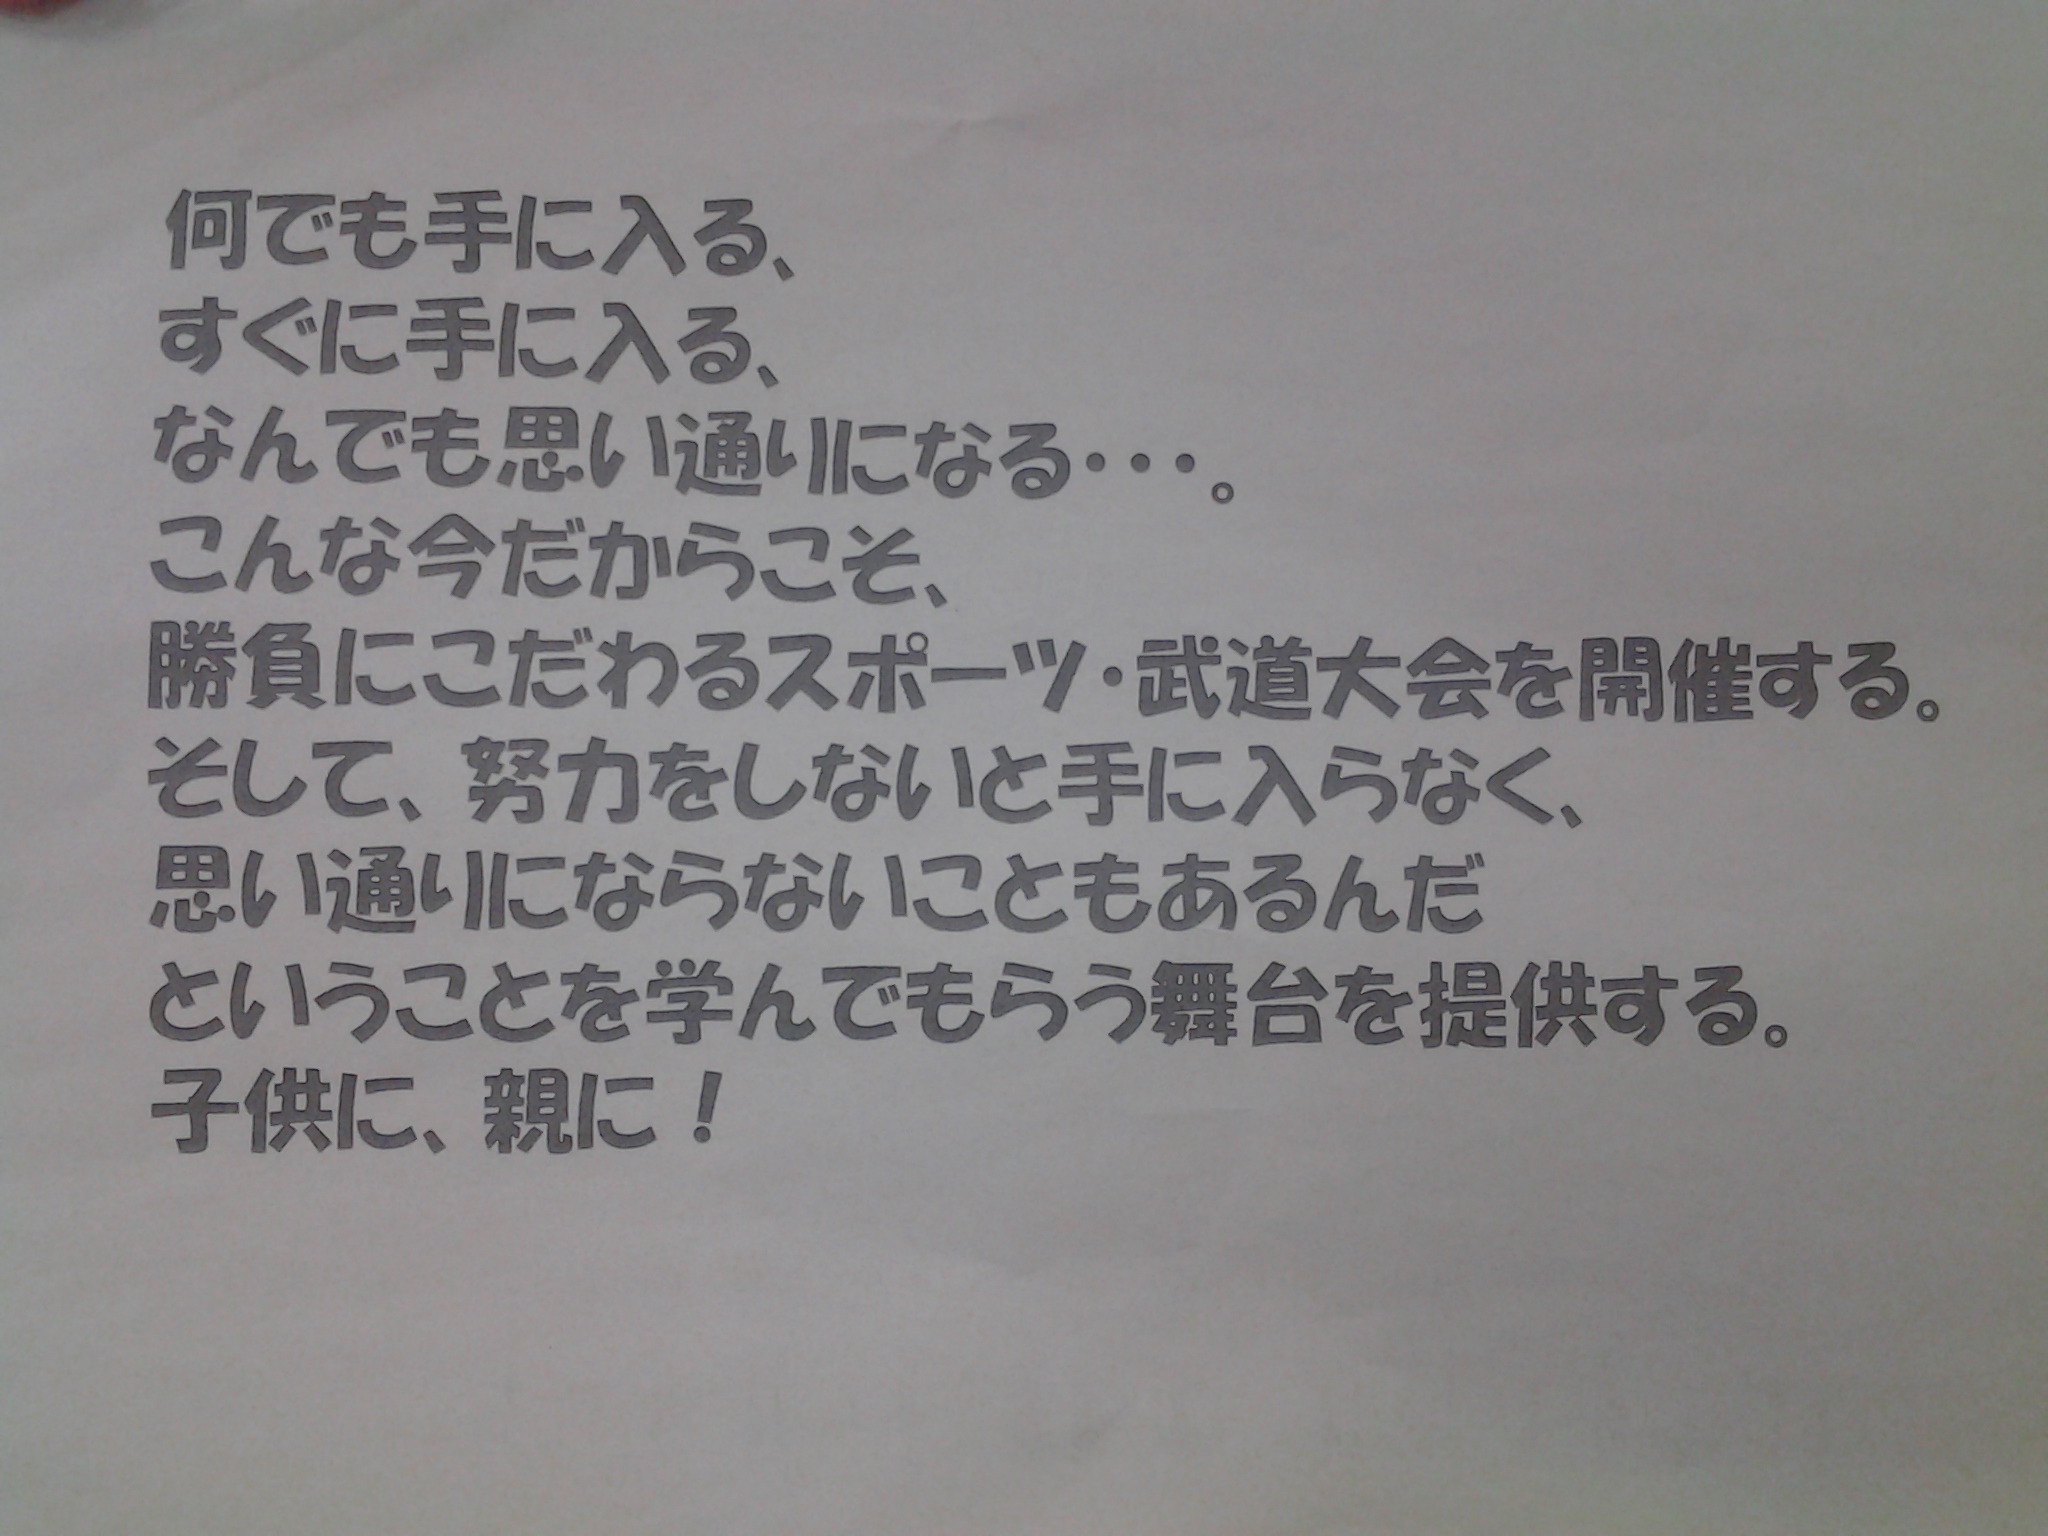 何でも手に入る、
すぐに手に入る、
なんでも思い通りになる・・・。
こんな今だからこそ、
勝負にこだわるスポーツ・武道大会を開催する。
そして、努力をしないと手に入らなく、
思い通りにならないこともあるんだ
ということを学んでもらう舞台を提供する。
子供に、親に！